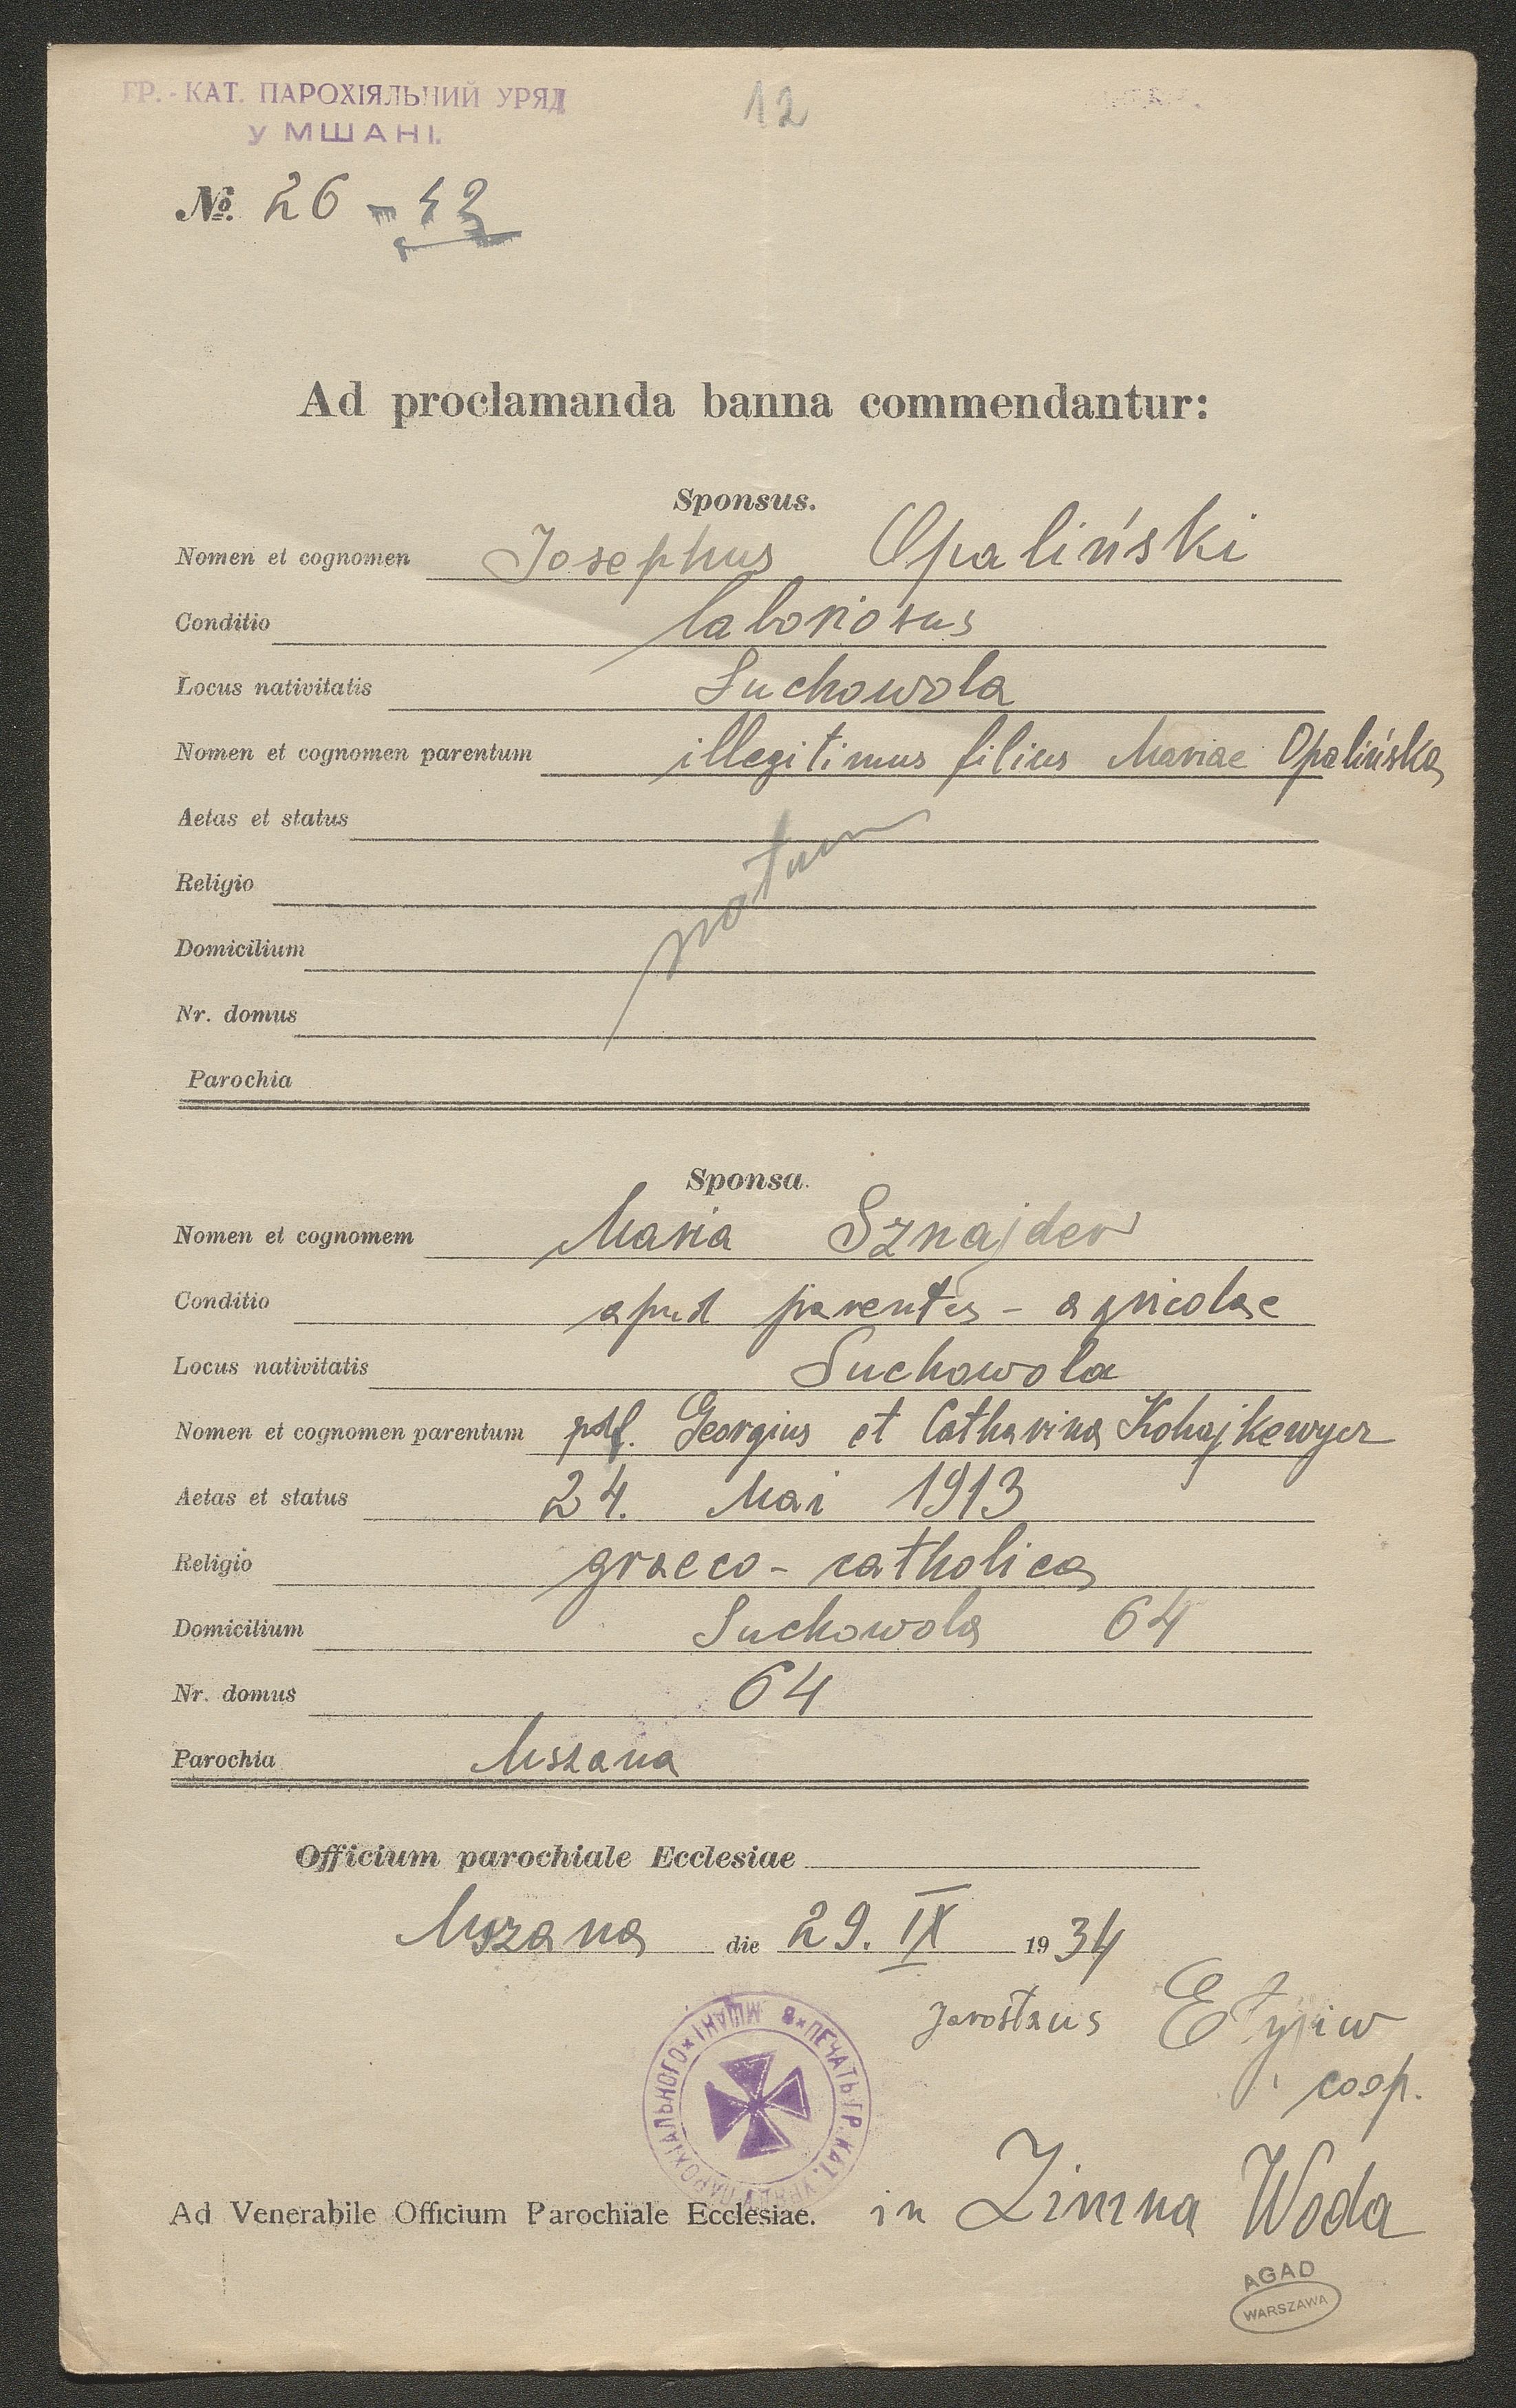 ГР.-КАТ. ПАРОХІЯЛЬНИЙ УРЯД
У МШАНІ.
12
№. 26
Ad proclamanda banna commendantur:
Sponsus.
Nomen et cognomen Josephus Opaliński
Conditio laboriosus
Locus nativitatis Suchowola
Nomen et cognomen parentum illegitimus filius Mariae Opalińska
Aetas et status
Religio
notum
Domicilium
Nr. domus
Parochia
Sponsa.
Nomen et cognomem Maria Sznajder
Conditio apud parentes - agricolae
Locus nativitatis Suchowola
Nomen et cognomen parentum Georgius et Catharina Kohajkewycz
Aetas et status 24. Mai 1913
Religio graeco-catholica
Domicilium Suchowola 64
Nr. domus 64
Parochia Mszana
Officium parochiale Ecclesiae
Mszana die 29. IX 1934
Jarosłaus
coop.
ПЕЧАТЬ ГР. КАТ. УРЯДУ ПАРОХІАЛЬНОГО * В МШАНІ *
Ad Venerabile Officium Parochiale Ecclesiae. in Zimna Woda
AGAD
WARSZAWA